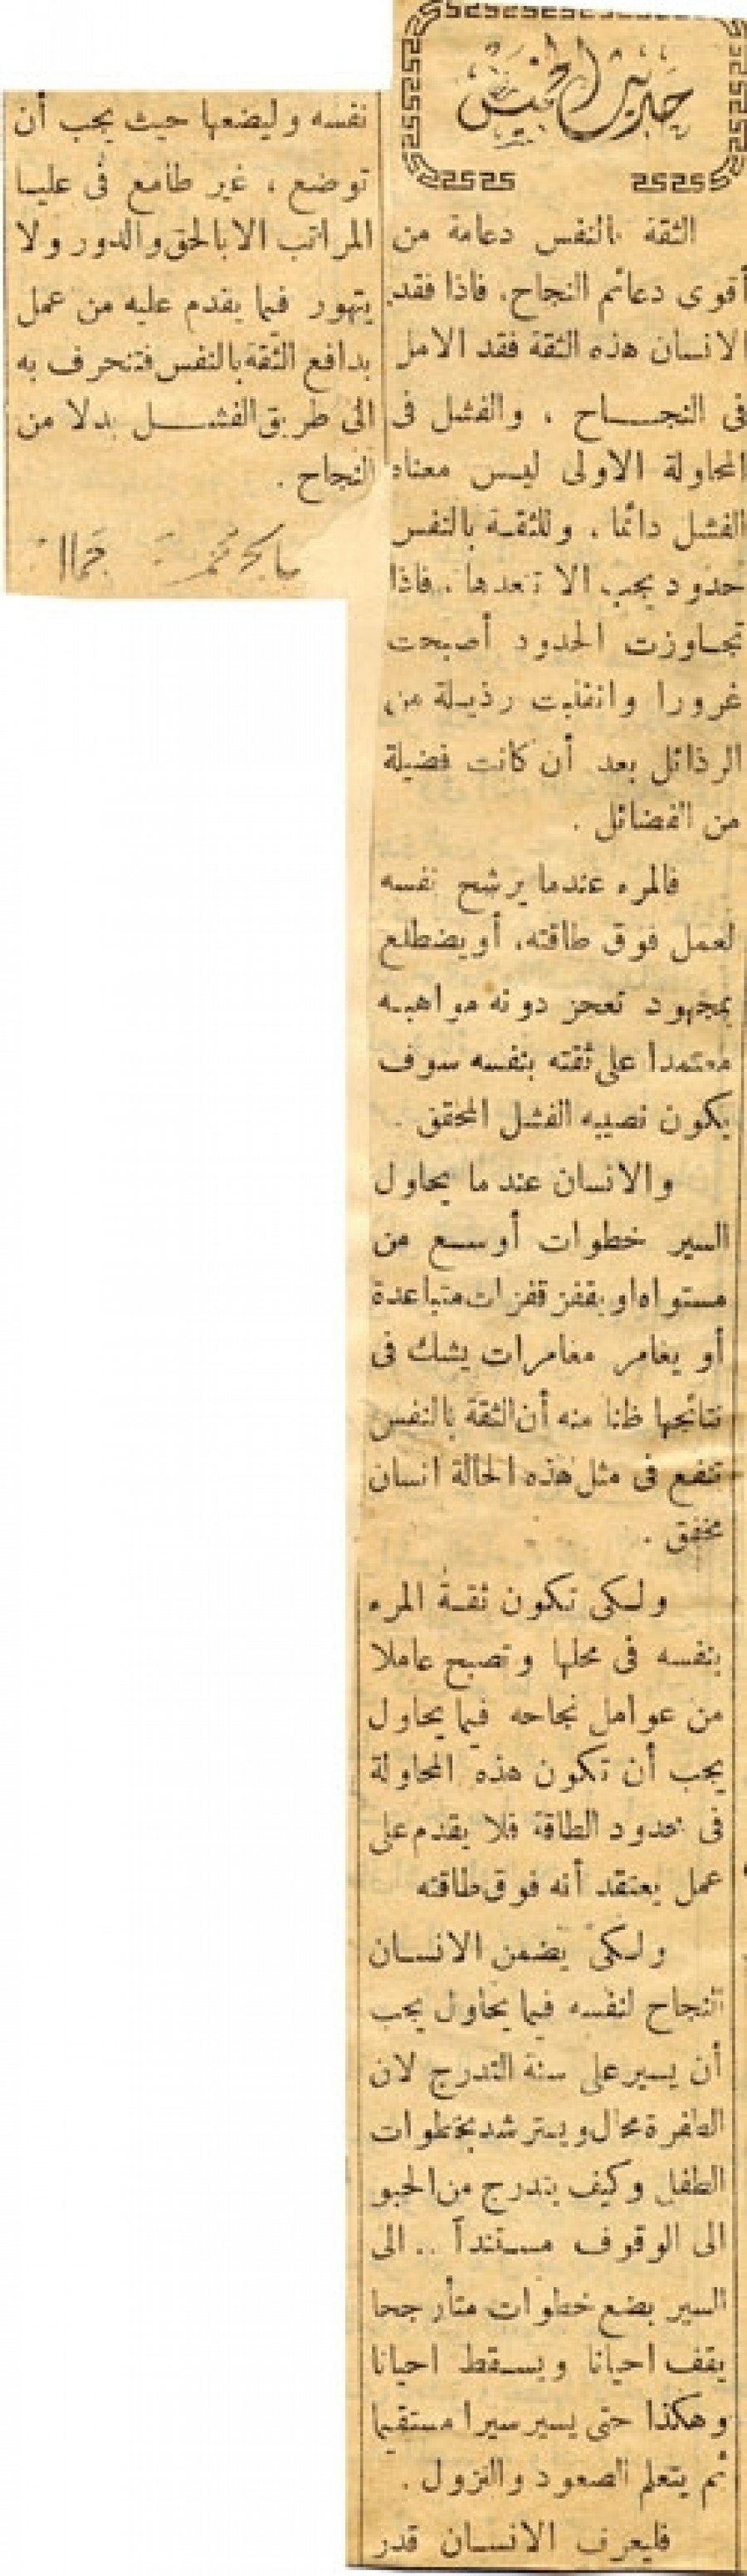 حديث الخميس
الثقة بالنفس دعامة من
أقوى دعائم النجاح. فاذا فقد
الانسان هذه الثقة فقد الامل
فى النجاح ، والفشل فى
المحاولة الاولى ليس معناه
الفشل دائما ، وللثقة بالنفس
حدود يجب الا تتعدها . فاذا
تجاوزت الحدود أصبحت
غرورا وانقلبت رذيلة من
الرذائل بعد أن كانت فضيلة
من الفضائل .
فالمرء عندما يرشح نفسه
لعمل فوق طاقته، أو يضطلع
بمجهود تعجز دونه مواهبه
معتمدا على ثقته بنفسه سوف
يكون نصيبه الفشل المحقق .
والانسان عند ما يحاول
السير خطوات أوسع من
مستواه او يقفز قفزات متباعدة
أو يغامر مغامرات يشك فى
نتائجها ظنا منه أن الثقة بالنفس
تنفع فى مثل هذه الحالة انسان
مخفق .
ولكى تكون ثقة المرء
بنفسه فى محلها وتصبح عاملا
من عوامل نجاحه فيما يحاول
يجب أن تكون هذه المحاولة
فى حدود الطاقة فلا يقدم على
عمل يعتقد أنه فوق طاقته
ولكى يضمن الانسان
النجاح لنفسه فيما يحاول يجب
أن يسير على سنة التدرج لان
الطفرة محال ويسترشد بخطوات
الطفل وكيف يتدرج من الحبو
الى الوقوف مستنداً .. الى
السير بضع خطوات متأرجحا
يقف احيانا ويسقط احيانا
وهكذا حتى يسير سيرا مستقيما
ثم يتعلم الصعود والنزول .
فليعرف الانسان قدر
نفسه وليضعها حيث يجب أن
توضع ، غير طامع فى عليا
المراتب الا بالحق والدور ولا
يتهور فيما يقدم عليه من عمل
بدافع الثقة بالنفس فتنحرف به
الى طريق الفشل بدلا من
النجاح .